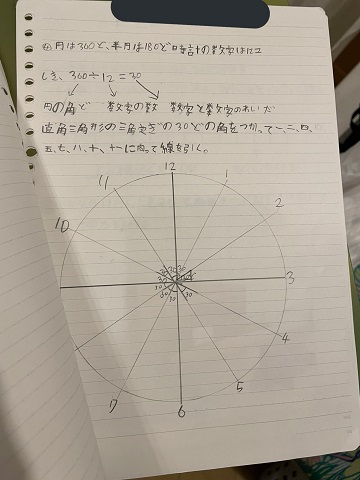 ④円は360ど、半円は180ど時計の数字は12コ
しき、360÷12=30
円の角ど 数字の数 数字と数字のあいだ
直角三角形の三角定ぎの30どの角をつかって一、二、四、
五、七、八、十、十一に向って線を引く。
12
11
1
10
2
3
4
7
5
6
30 30 30
30 30
30 30
30 30